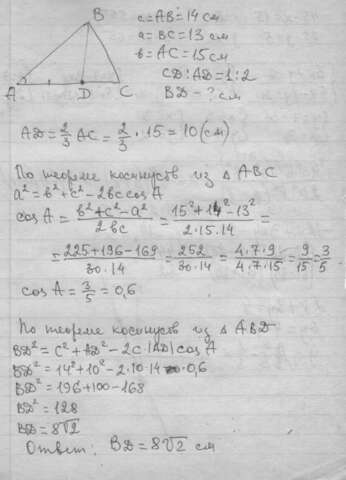 B
A
D
C
c = AB = 14 см
a = BC = 13 см
b = AC = 15 см
CD : AD = 1 : 2
BD - ? см
AD = 2/3 AC = 2/3 · 15 = 10 (см)
По теореме косинусов из △ ABC
a² = b² + c² - 2bc cos A
cos A = (b² + c² - a²)/(2bc) = (15² + 14² - 13²)/(2·15·14) =
= (225 + 196 - 169)/(30·14) = 252/(30·14) = (4·7·9)/(4·7·15) = 9/15 = 3/5
cos A = 3/5 = 0,6
По теореме косинусов из △ ABD
BD² = c² + AD² - 2c |AD| cos A
BD² = 14² + 10² - 2·10·14 · 0,6
BD² = 196 + 100 - 168
BD² = 128
BD = 8√2
Ответ: BD = 8√2 см